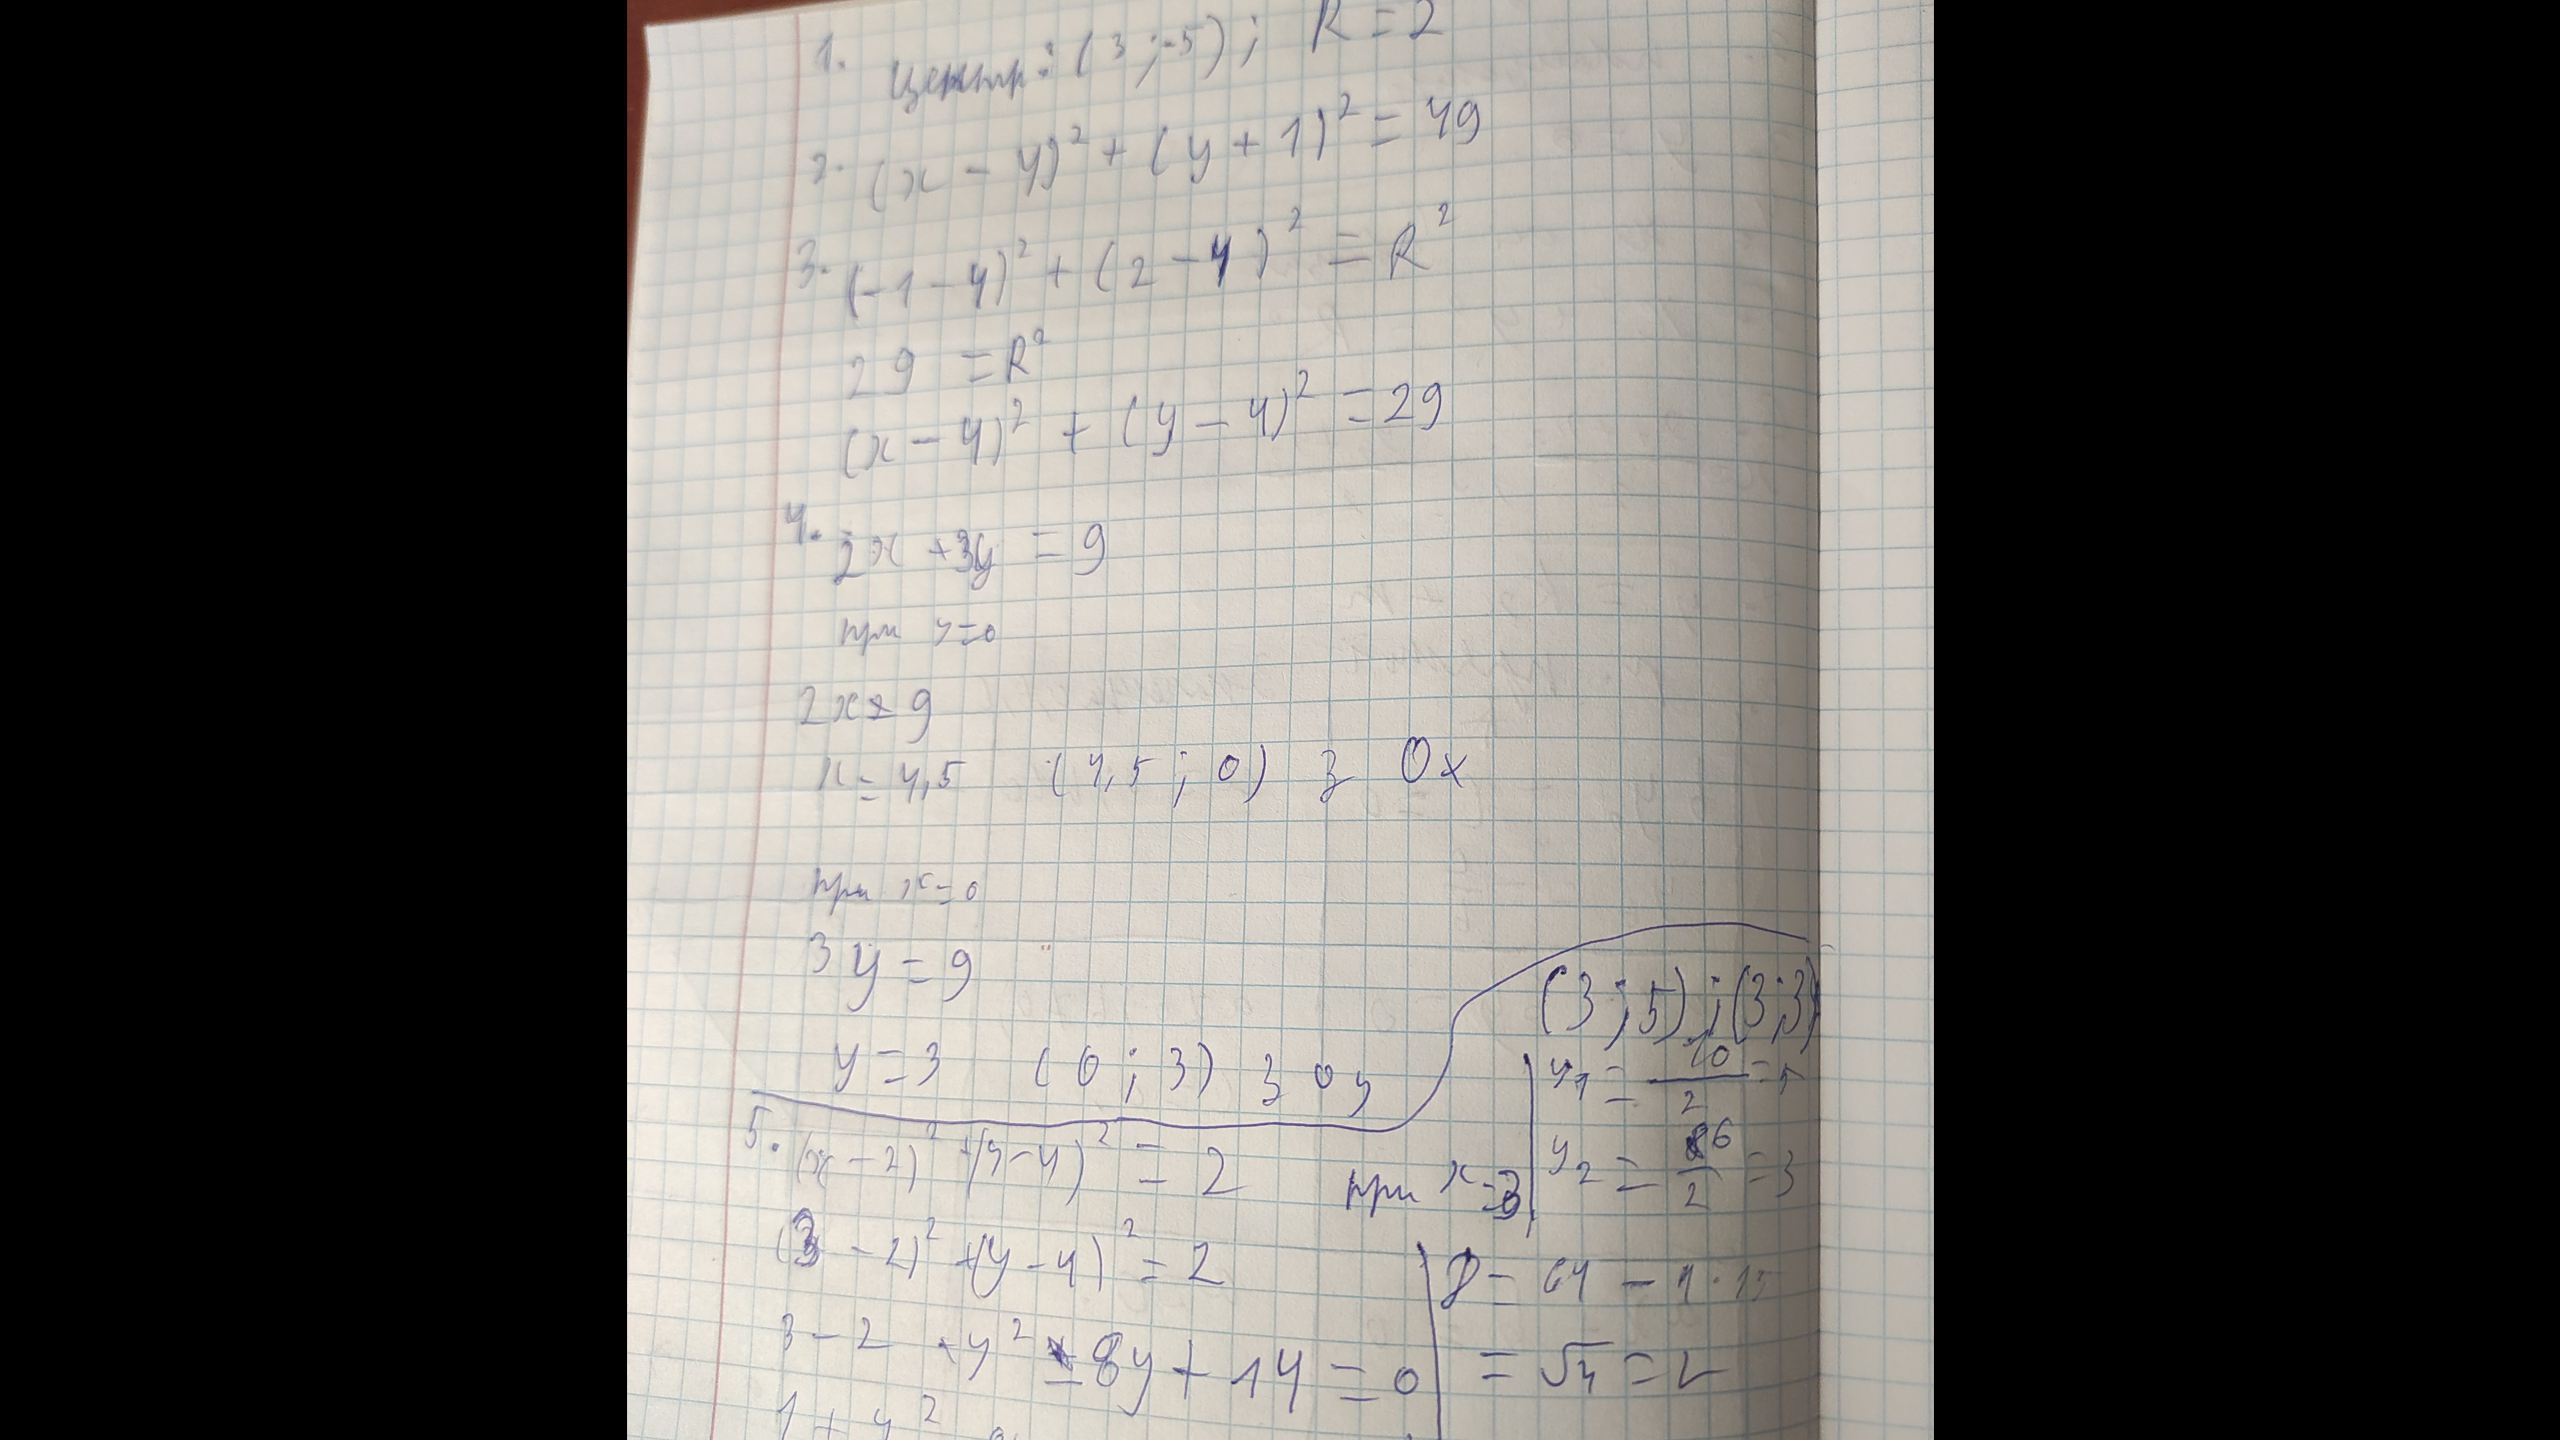 1. Центр: (3 ; -5) ; R = 2
2. (x - 4)² + (y + 1)² = 49
3. (-1 - 4)² + (2 - 4)² = R²
29 = R²
(x - 4)² + (y - 4)² = 29
4. 2x + 3y = 9
при y = 0
2x = 9
x = 4,5 (4,5 ; 0) з Ox
при x = 0
3y = 9
y = 3 (0 ; 3) з Oy
5. (x - 2)² + (y - 4)² = 2 при x = 3
(3 - 2)² + (y - 4)² = 2
3 - 2 + y² - 8y + 14 = 0
1 + y²
(3 ; 5) ; (3 ; 3)
y₁ = 10/2 = 5
y₂ = 6/2 = 3
D = 64 - 4 · 15
= √4 = 2